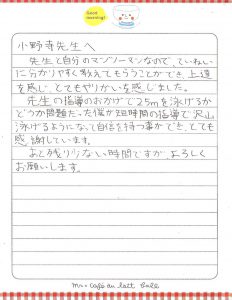 Good
morning!
小野寺先生へ
先生と自分のマンツーマンなので、ていねい
に分かりやすく教えてもらうことができ、上達
を感じ、とてもやりがいを感じました。
先生の指導のおかげで25mを泳げるか
どうか問題だった僕が短時間の指導で沢山
泳げるようになって自信を持つ事ができ、とても
感謝しています。
あと残り少ない時間ですが、よろしく
お願いします。
Café au lait